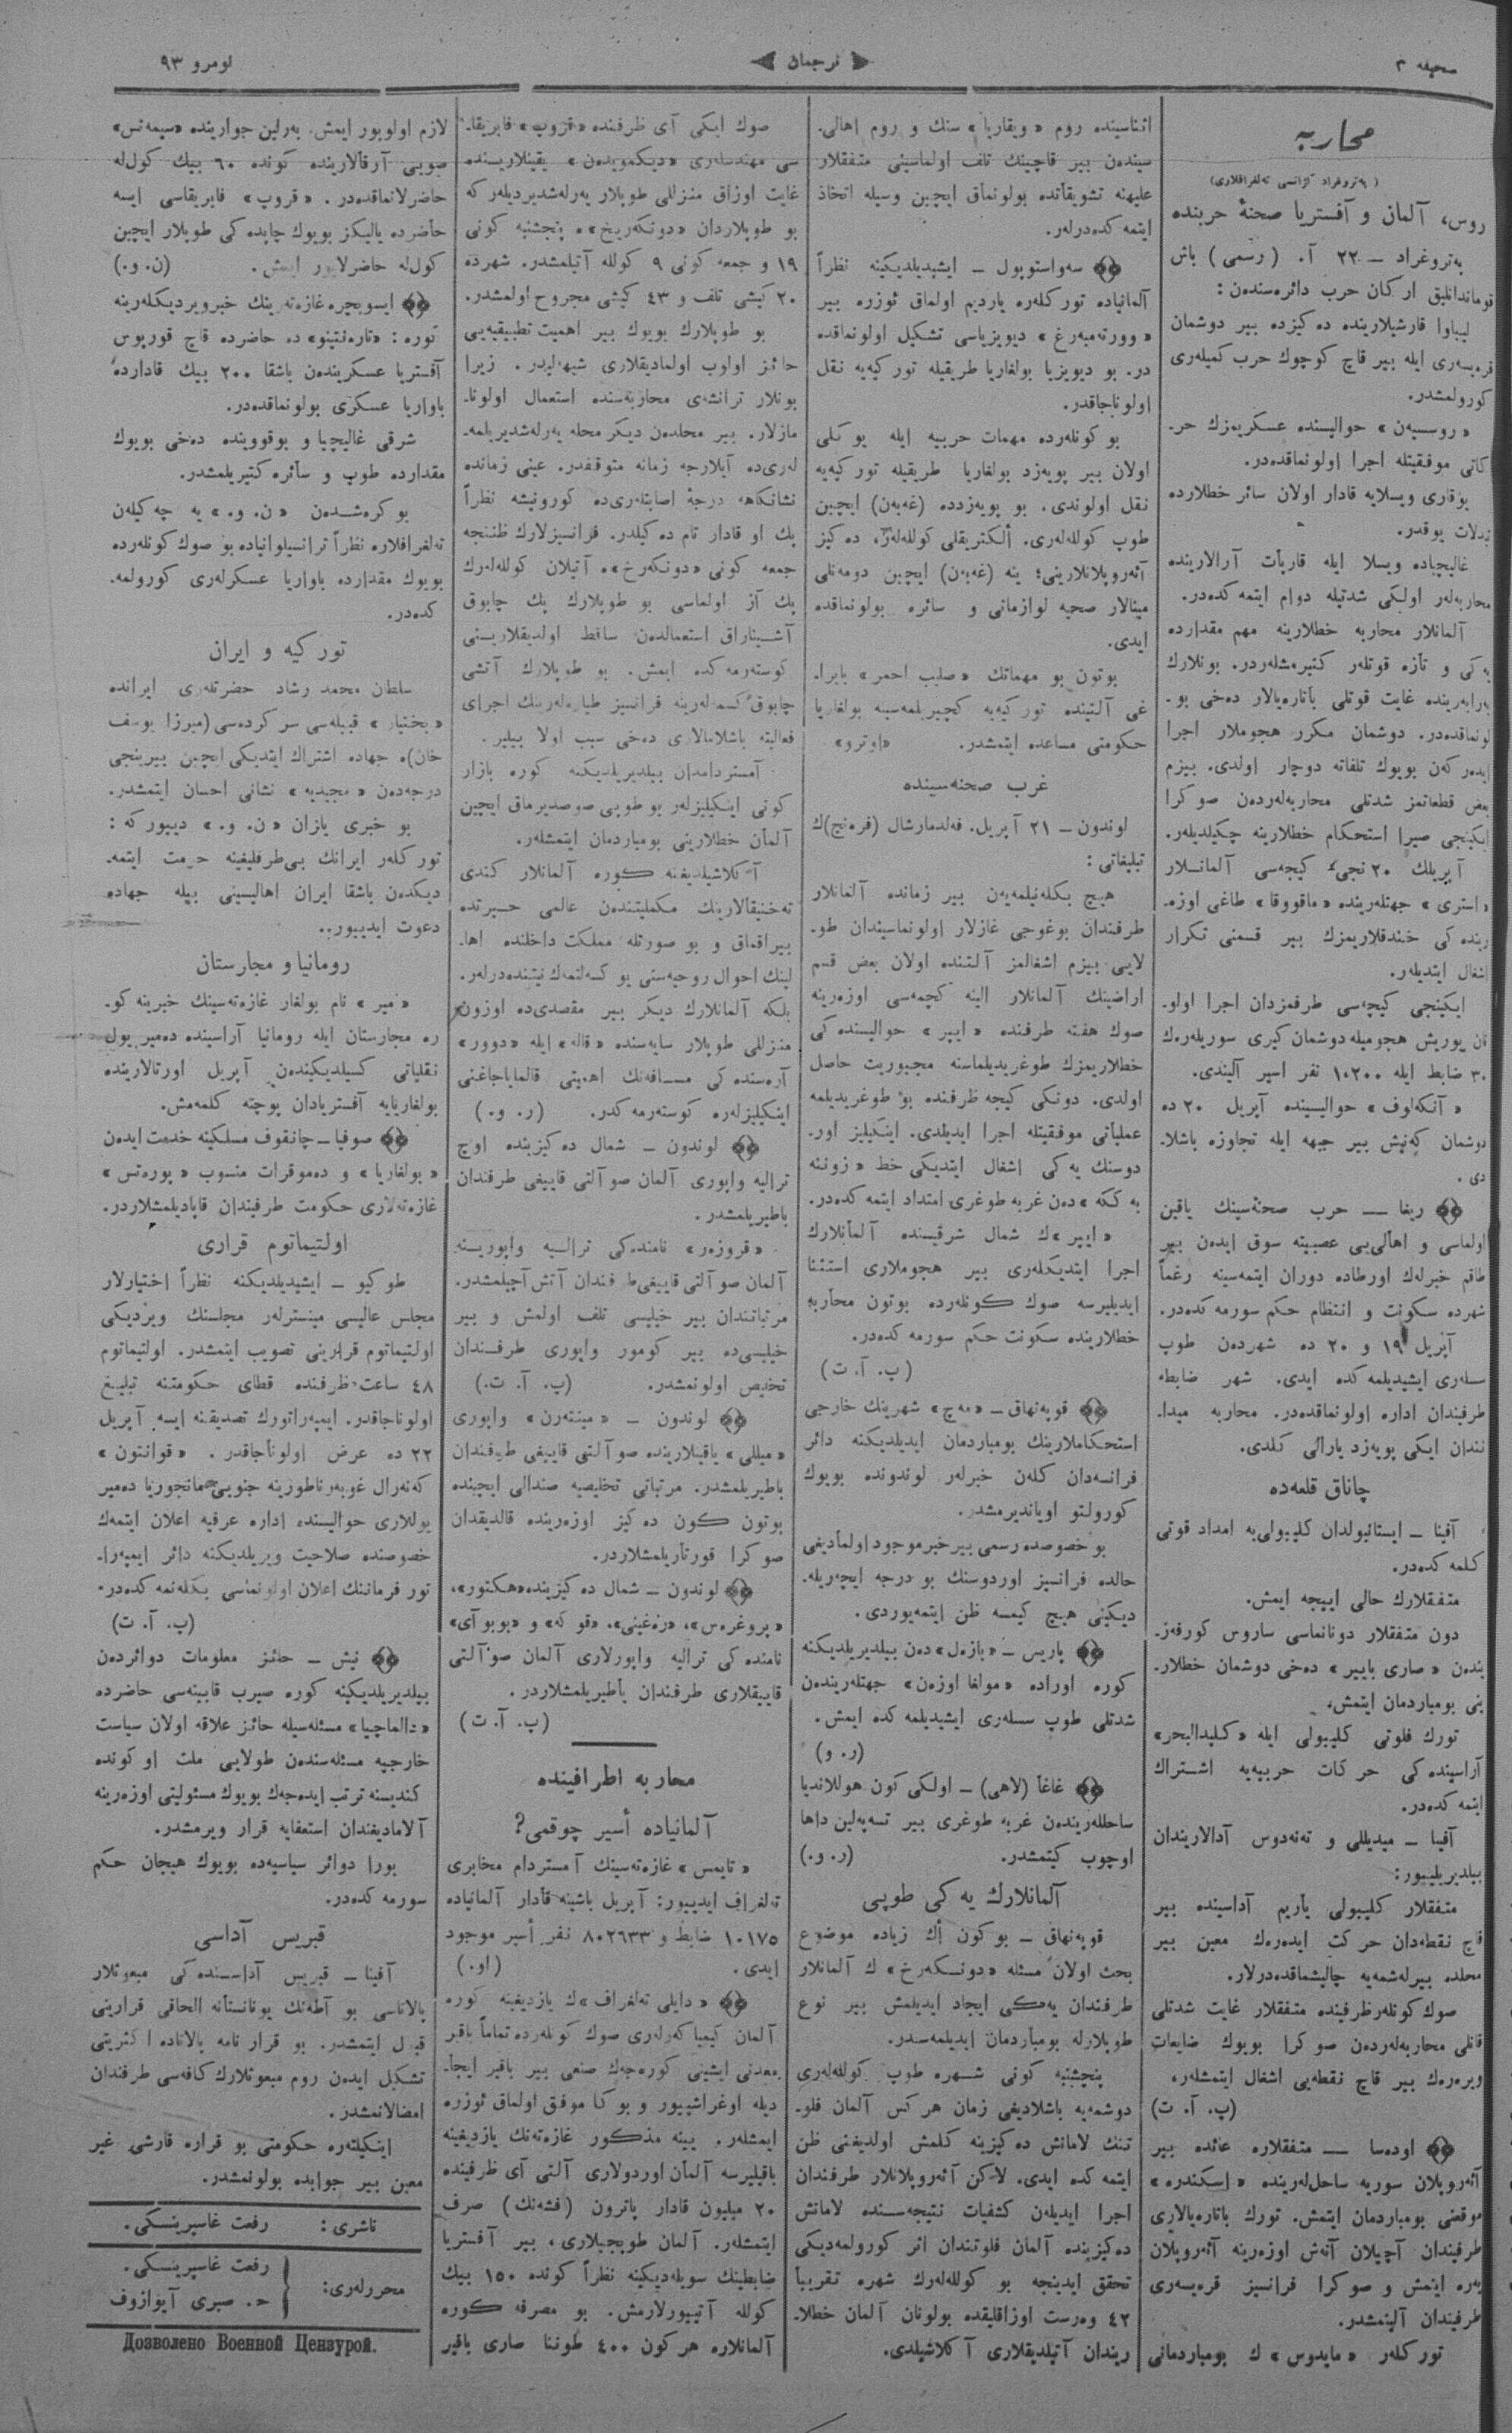 صحیفه ٣
ترجمان
نومرو ٩٣
محاربه
(پەتروغراد آژانسی تەلغرافلاری)
روس، آلمان و آفستریا صحنهٔ حربنده
پەتروغراد — ٢٢ آ. (رسمی) باش
قوماندانلیق ارکان حرب دائرەسندن:
لیباوا قارشیلارینده دەکیزده بیر دوشمان
قرەیسەری ایله بیر قاچ کوچوك حرب کمیلەری
کورولمشدر.
«روسسیەن» حوالیسنده عسکریمزك حر-
کاتی موفقیتله اجرا اولونماقدەدر.
یوقاری ویسلایه قادار اولان سائر خطلارده
تبدلات یوقدر.
غالیچیاده ویسلا ایله قارپات آرالارینده
محاربەلەر اولکی شدتیله دوام ایتمەکدەدر.
آلمانلار محاربه خطلارینه مهم مقدارده
یەکی و تازه قوتلەر کتیرمشلەردر. بونلارك
برابەرینده غایت قوتلی باتارەیالار دەخی بو-
لونماقدەدر. دوشمان مکرر هجوملار اجرا
ایدەرکەن بویوك تلفاته دوچار اولدی. بیزم
بعض قطعاتمز شدتلی محاربەلەردەن صوکرا
ایکینجی صیرا استحکام خطلارینه چکیلدیلەر.
آپریلك ٢٠ نجی کیجەسی آلمانلار
«استری» جهتلەرینده «ماقووقا» طاغی اوزە-
رینده کی خندقلاریمزك بیر قسمنی تکرار
اشغال ایتدیلەر.
ایکینجی کیجەسی طرفمزدان اجرا اولو-
نان یوریش هجومیله دوشمان کیری سوریلەرەك
٣٠ ضابط ایله ١٠٢٠٠ نفر اسیر آلیندی.
«آنکەلوف» حوالیسینده آپریل ٢٠ ده
دوشمان کەنیش بیر جبهه ایله تجاوزه باشلا-
دی.
ریغا — حرب صحنەسینك یاقین
اولماسی و اهالی‌یی عصبیته سوق ایدەن بیر
طاقم خبرلەك اورطاده دوران ایتمەسینه رغماً
شهرده سکونت و انتظام حکم سورمەکدەدر.
آپریل ١٩ و ٢٠ ده شهردەن طوپ
سسلەری ایشیدیلمەکده ایدی. شهر ضابطه
طرفیندان اداره اولونماقدەدر. محاربه میدا-
نندان ایکی پویەزد یارالی کلدی.
چاناق قلعەده
آفینا — ایستانبولدان کلیبولی‌یه امداد قوتی
کلمەکدەدر.
متفقلارك حالی اییجه ایمش.
دون متفقلار دونانماسی ساروس کورفەز-
یندەن «صاری بایر» دەخی دوشمان خطلار-
ینی بومباردمان ایتمش.
تورك فلوتی کلیبولی ایله «کلیدالبحر»
آراسینده کی حرکات حربیەیه اشتراك
ایتمەکدەدر.
آفینا — میدیللی و تەنەدوس آدالاریندان
بیلدیریلییور:
متفقلار کلیبولی یاریم آداسینده بیر
قاچ نقطەدان حرکت ایدەرەك معین بیر
محلده بیرلەشمەیه چالیشماقدەدرلار.
صوك کونلەر ظرفینده متفقلار غایت شدتلی
قانلی محاربەلەردەن صوکرا بویوك ضایعات
ویرەرەك بیر قاچ نقطەیی اشغال ایتمشلەر.
(پ. آ. ت)
اودەسا — متفقلاره عائده بیر
آئەروپلان سوریه ساحللەرینده «اسکندره»
موقعنی بومباردمان ایتمش. تورك باتارەیالاری
طرفیندان آچیلان آتەش اوزەرینه آئەروپلان
یەره اینمش و صوکرا فرانسیز قرەیسەری
طرفیندان آلینمشدر.
تورکلەر «مایدوس»ك بومباردمانی
اثناسینده روم «ویقاریا» سنك و روم اهالی-
سیندەن بیر قاچینك تلف اولماسینی متفقلار
علیهنه تشویقاتده بولونماق ایچین وسیله اتخاذ
ایتمەکدەدرلەر.
سەواستوپول — ایشیدیلدیکینه نظراً
آلمانیاده تورکلەره یاردیم اولماق ئوزره بیر
«وورتەمبەرغ» دیویزیاسی تشکیل اولونماقده
در. بو دیویزیا بولغاریا طریقیله تورکیەیه نقل
اولوناجاقدر.
بو کونلەرده مهمات حربیه ایله یوکلی
اولان بیر پویەزد بولغاریا طریقیله تورکیەیه
نقل اولوندی. بو پویەزدده (غەبەن) ایچین
طوپ کوللەلەری. ألکتریقلی کوللەلەر، دەکیز
آئەروپلانلارینی؛ ینه (غەبەن) ایچین دومەنلی
مینالار صحیه لوازماتی و سائره بولونماقده
ایدی.
بوتون بو مهماتك «صلیب احمر» بایرا-
غی آلتینده تورکیەیه کچیریلمەسینه بولغاریا
حکومتی مساعده ایتمشدر. «اوترو»
غرب صحنەسینده
لوندون — ٢١ آپریل. فەلدمارشال (فرەنچ)ك
تبلیغاتی:
هیچ بکلەنیلمەیەن بیر زمانده آلمانلار
طرفندان بوغوجی غازلار اولونماسیندان طو-
لایی بیزم اشغالمز آلتنده اولان بعض قسم
اراضینك آلمانلار الینه کچمەسی اوزەرینه
صوك هفته طرفنده «ایپر» حوالیسنده کی
خطلاریمزك طوغریدیلماسنه مجبوریت حاصل
اولدی. دونکی کیجه ظرفنده بو طوغریدیلمه
عملیاتی موفقیتله اجرا ایدیلدی. اینکیلیز اور-
دوسنك یەکی اشغال ایتدیکی خط «زوننه
بەککە»دەن غربه طوغری امتداد ایتمەکدەدر.
«ایپر»ك شمال شرقیسنده آلمانلارك
اجرا ایتدیکلەری بیر هجوملاری استثنا
ایدیلیرسه صوك کونلەرده بوتون محاربه
خطلارینده سکونت حکم سورمەکدەدر.
(پ. آ. ت)
قوپەنهاق — «مەچ» شهرینك خارجی
استحکاملارینك بومباردمان ایدیلدیکنه دائر
فرانسەدان کلەن خبرلەر لوندونده بویوك
کورولتو اویاندیرمشدر.
بو خصوصده رسمی بیر خبر موجود اولمادیغی
حالده فرانسیز اوردوسنك بو درجه ایچەریله-
دیکینی هیچ کیمسه ظن ایتمەیوردی.
پاریس — «بازەل»دەن بیلدیریلدیکنه
کوره اوراده «مولغا اوزەن» جهتلەریندەن
شدتلی طوپ سسلەری ایشیدیلمەکده ایمش.
(ر. و)
غاغا (لاهی) — اولکی کون هوللاندیا
ساحللەریندەن غربه طوغری بیر تسەپەلین داها
اوچوب کیتمشدر. (ر. و.)
آلمانلارك یەکی طوپی
قوپەنهاق — بو کون أك زیاده موضوع
بحث اولان مسئله «دونکەرخ» ك آلمانلار
طرفندان یەکی ایجاد ایدیلمش بیر نوع
طوپلارله بومباردمان ایدیلمەسیدر.
پنجشنبه کونی شهره طوپ کوللەلەری
دوشمەیه باشلادیغی زمان هرکس آلمان فلو-
تنك لامانش دەکیزینه کلمش اولدیغنی ظن
ایتمەکده ایدی. لاکن آئەروپلانلار طرفندان
اجرا ایدیلەن کشفیات نتیجەسنده لامانش
دەکیزینده آلمان فلوتندان اثر کورولمەدیکی
تحقق ایدینجه بو کوللەلەرك شهره تقریباً
٤٢ وەرست اوزاقلیقده بولونان آلمان خطلا-
ریندان آتیلدیقلاری آکلاشیلدی.
صوك ایکی آی ظرفنده «قروپ» فابریقا-
سی مهندسلەری «دیکمویدەن» یقینلارینده
غایت اوزاق منزللی طوپلار یەرلەشدیردیلەر که
بو طوپلاردان «دونکەریخ»ە پنجشنبه کونی
١٩ و جمعه کونی ٩ کولله آتیلمشدر. شهرده
٢٠ کیشی تلف و ٤٣ کیشی مجروح اولمشدر.
بو طوپلارك بویوك بیر اهمیت تطبیقیەیی
حائز اولوب اولمادیقلاری شبهەلیدر. زیرا
بونلار ترانشەی محاربەسنده استعمال اولونا-
مازلار. بیر محلدەن دیکر محله یەرلەشدیریلمه-
لەری‌ده آیلارجه زمانه متوقفدر. عینی زمانده
نشانکاهه درجهٔ اصابتلەری‌ده کورونیشه نظراً
پك او قادار تام دەکیلدر. فرانسیزلارك ظننجه
جمعه کونی «دونکەرخ»ە آتیلان کوللەلەرك
پك آز اولماسی بو طوپلارك پك چابوق
آشیناراق استعمالدەن ساقط اولدیقلارینی
کوستەرمەکده ایمش. بو طوپلارك آتشی
چابوق کسمەلەرینه فرانسیز طیارەلەرینك اجرای
فعالیته باشلامالاری دەخی سبب اولا بیلیر.
آمستردامدان بیلدیریلدیکنه کوره بازار
کونی اینکیلیزلەر بو طوپی صوصدیرماق ایچین
آلمان خطلارینی بومباردمان ایتمشلەر.
آکلاشیلدیغنه کوره آلمانلار کندی
تەخنیقالارینك مکملیتندەن عالمی حیرتده
بیراقماق و بو صورتله مملکت داخلنده اها-
لینك احوال روحیەسنی یوکسەلتمەك نیتندەدرلەر.
بلکه آلمانلارك دیکر بیر مقصدی‌ده اوزون
منزللی طوپلار سایەسنده «قاله» ایله «دوور»
آرەسنده کی مسافەنك اهمیتی قالمایاجاغنی
اینکیلیزلەره کوستەرمەکدر. (ر. و.)
لوندون — شمال دەکیزینده اوچ
ترالیه واپوری آلمان صو آلتی قاییغی طرفندان
باطیریلمشدر.
«قروزەر» نامنده‌کی ترالیه واپورینه
آلمان صو آلتی قاییغی طرفندان آتش آچیلمشدر.
مرتباتندان بیر خیلیسی تلف اولمش و بیر
خیلیسی‌ده بیر کومور واپوری طرفندان
تخلیص اولونمشدر. (پ. آ. ت.)
لوندون — «مینتەرن» واپوری
«میللی» یاقینلارینده صو آلتی قاییغی طرفندان
باطیریلمشدر. مرتباتی تخلیصیه صندالی ایچینده
بوتون کون دەکیز اوزەرینده قالدیقدان
صوکرا قورتاریلمشلاردر.
لوندون — شمال دەکیزینده «هکتور»،
«پروغرەس»، «رەغینی»، «قوکه» و «بوبوآی»
نامنده‌کی ترالیه واپورلاری آلمان صو آلتی
قاییقلاری طرفندان باطیریلمشلاردر.
(پ. آ. ت)
محاربه اطرافینده
آلمانیاده أسیر چوقمی؟
«تایمس» غازەتەسینك آمستردام مخابری
تەلغراف ایدییور: آپریل باشینه قادار آلمانیاده
١٠١٧٥ ضابط و ٨٠٢٦٣٣ نفر أسیر موجود
ایدی. (او.)
«دایلی تەلغراف»ك یازدیغینه کوره
آلمان کیمیاکەرلەری صوك کونلەرده تماماً باقیر
معدنی ایشینی کورەجەك صنعی بیر باقیر ایجا-
دیله اوغراشییور و بوکا موفق اولماق ئوزره
ایمشلەر. یینه مذکور غازەتەنك یازدیغینه
باقیلیرسه آلمان اوردولاری آلتی آی ظرفینده
٢٠ میلیون قادار پاترون (فشەنك) صرف
ایتمشلەر. آلمان طوپچیلاری، بیر آفستریا
ضابطینك سویلەدیکینه نظراً کونده ١٥٠ بیك
کولله آتییورلارمش. بو مصرفه کوره
آلمانلاره هر کون ٤٠٠ طوننا صاری باقیر
لازم اولویور ایمش. بەرلین جوارینده «سیمەنس»
صویی آرقالارینده کونده ٦٠ بیك کولله
حاضرلانماقدەدر. «قروپ» فابریقاسی ایسه
حاضرده یالیکز بویوك چاپده کی طوپلار ایچین
کولله حاضرلایور ایمش. (ن. و.)
ایسویچره غازەتەرینك خبر ویردیکلەرینه
کوره: «تارەنتینو» ده حاضرده قاچ قورپوس
آفستریا عسکریندەن باشقا ٢٠٠ بیك قاداردە
باواریا عسکری بولونماقدەدر.
شرقی غالیچیا و بوقووینده دەخی بویوك
مقدارده طوپ و سائره کتیریلمشدر.
بوکرەشدەن «ن. و.» یه چەکیلەن
تەلغرافلاره نظراً ترانسیلوانیاده بو صوك کونلەرده
بویوك مقدارده باواریا عسکرلەری کورولمه-
کدەدر.
تورکیه و ایران
سلطان محمد رشاد حضرتلەری ایرانده
«بختیار» قبیلەسی سرکردەسی (میرزا یوسف
خان)ە جهاده اشتراك ایتدیکی ایچین بیرینجی
درجەدەن «مجیدیه» نشانی احسان ایتمشدر.
بو خبری یازان «ن. و.» دییورکه:
تورکلەر ایرانك بی‌طرفلیغینه حرمت ایتمه-
دیکدەن باشقا ایران اهالیسینی بیله جهاده
دعوت ایدییور..
رومانیا و مجارستان
«میر» نام بولغار غازەتەسینك خبرینه کو-
ره مجارستان ایله رومانیا آراسینده دەمیریول
نقلیاتی کسیلدیکیندەن آپریل اورتالارینده
بولغاریایه آفستریادان پوچته کلمەمش.
صوفیا — چانقوف مسلکینه خدمت ایدەن
«بولغاریا» و دەموقرات منسوب «پورەتس»
غازەتەلاری حکومت طرفیندان قاپادیلمشلاردر.
اولتیماتوم قراری
طوکیو — ایشیدیلدیکنه نظراً اختیارلار
مجلس عالیسی مینسترلەر مجلسنك ویردیکی
اولتیماتوم قرارینی تصویب ایتمشدر. اولتیماتوم
٤٨ ساعت ظرفنده قطای حکومتنه تبلیغ
اولوناجاقدر. ایمپەراتورك تصدیقنه ایسه آپریل
٢٢ ده عرض اولوناجاقدر. «قوانتون»
کەنەرال غوبەرناطورینه جنوبی مانجوریا دەمیر
یوللاری حوالیسنده اداره عرفیه اعلان ایتمەك
خصوصنده صلاحیت ویریلدیکنه دائر ایمپەرا-
تور فرماننك اعلان اولونماسی بکلەنمەکدەدر.
(پ. آ. ت)
نیش — حائز معلومات دوائردەن
بیلدیریلدیکینه کوره صیرب قابینەسی حاضرده
«دالماچیا» مسئلەسیله حائز علاقه اولان سیاست
خارجیه مسئلەسندەن طولایی ملت اوکونده
کندیسنه ترتب ایدەجەك بویوك مسئولیتی اوزەرینه
آلامادیغندان استعفایه قرار ویرمشدر.
بورا دوائر سیاسیەده بویوك هیجان حکم
سورمەکدەدر.
قبریس آداسی
آفینا — قبریس آداسنده کی مبعوثلار
پالاتاسی بو آطەنك یونانستانه الحاقی قرارینی
قبل ایتمشدر. بو قرار نامه پالاتاده اکثریتی
تشکیل ایدەن روم مبعوثلارك کافەسی طرفندان
امضالانمشدر.
اینکیلتەره حکومتی بو قراره قارشی غیر
معین بیر جوابده بولونمشدر.
ناشری: رفعت غاسپرینسکی.
محررلەری: رفعت غاسپرینسکی.
ح. صبری آیوازوف
Дозволено Военной Цензурой.